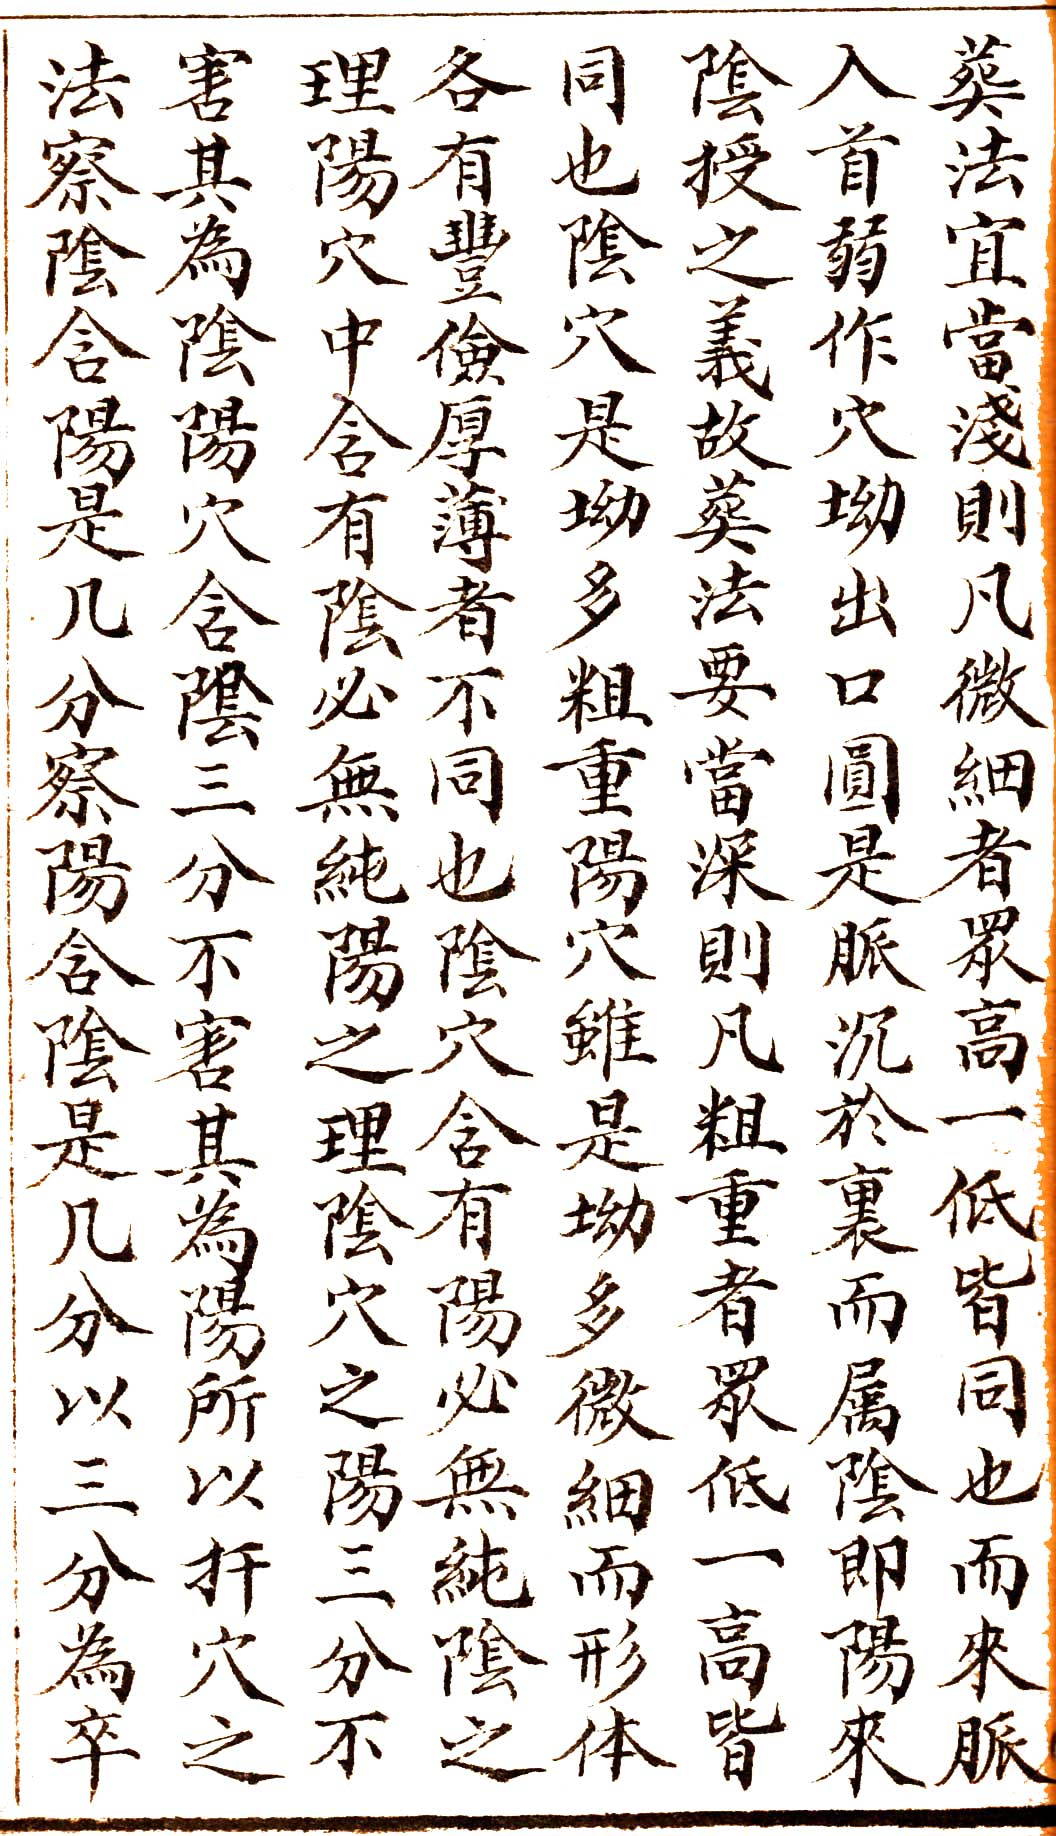 葬法宜當淺則凡微細者眾高一低皆同也而來脈
入首弱作穴坳出口圓是脈沉於裏而属陰即陽來
陰授之義故葬法要當深則凡粗重者眾低一高皆
同也陰穴是坳多粗重陽穴雖是坳多微細而形体
各有豐儉厚薄者不同也陰穴含有陽必無純陰之
理陽穴中含有陰必無純陽之理陰穴之陽三分不
害其為陰陽穴含陰三分不害其為陽所以扦穴之
法察陰含陽是几分察陽含陰是几分以三分為卒